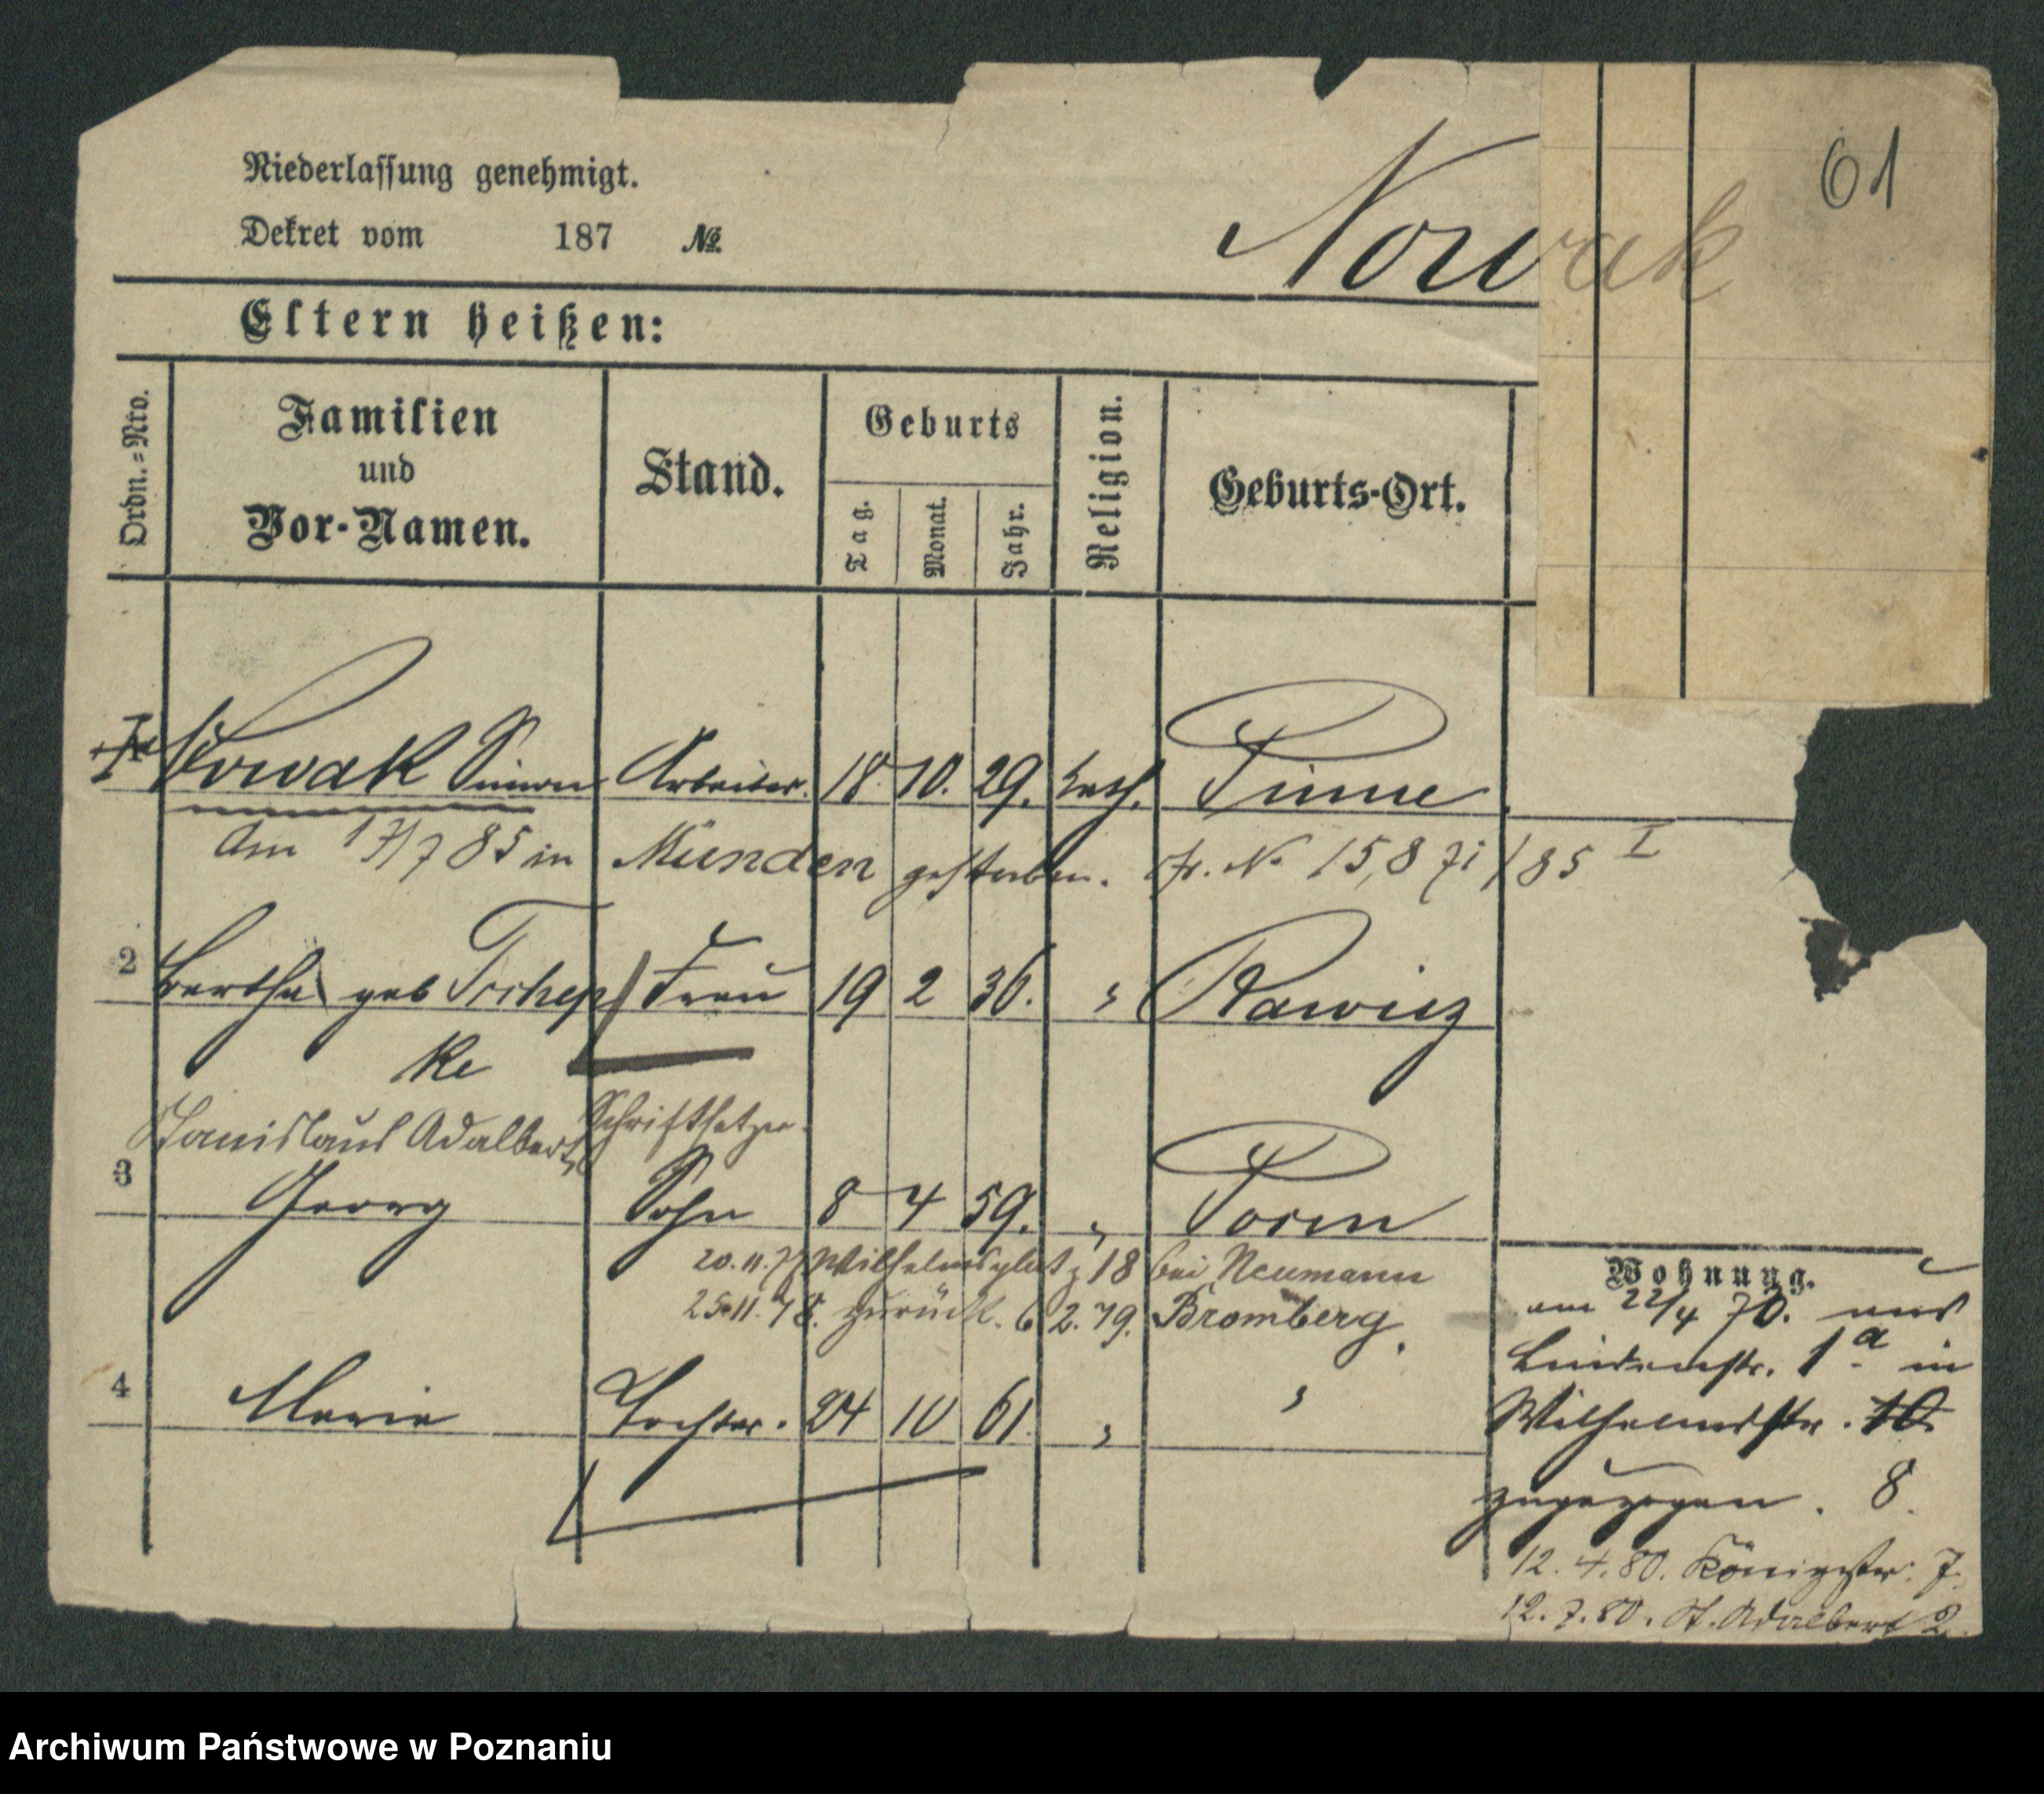 61
Niederlassung genehmigt.
Dekret vom 187 №
Nowak
Eltern heißen:
Ordn.=Nro.
Familien und Vor-Namen.
Stand.
Geburts
Tag. Monat. Jahr.
Religion.
Geburts-Ort.
Nowak Simon Arbeiter. 18. 10. 29. kath. Pinne
Am 17/7 85 in Münden gestorben. Jr. № 15,871/85 I
2 Bertha geb Tschep Frau 19 2 36. " Rawicz
ke
Stanislaus Adalbert Schriftsetzer.
3 Georg Sohn 8 4 59. " Posen
20.11.77 Wilhelmsplatz 18 bei Neumann
25.11.78. zurück. 6 2. 79. Bromberg.
4 Marie Tochter. 24 10 61. " "
Wohnung.
am 22/4 70. aus
Lindenstr. 1a in
Wilhelmstr. 10
zugezogen. 8.
12. 4. 80. Königstr. 7.
12. 7. 80. St. Adalbert 2.
Archiwum Państwowe w Poznaniu